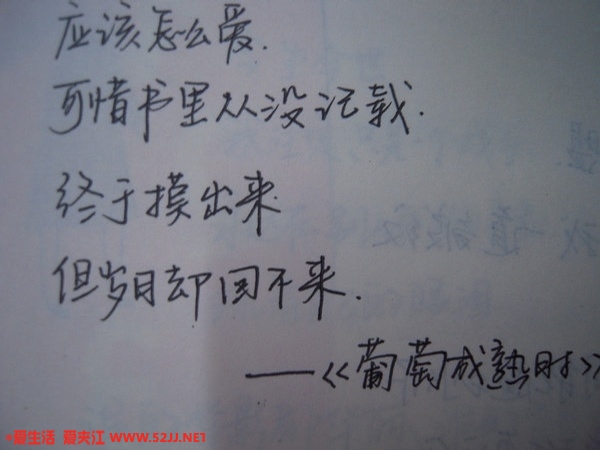 应该怎么爱.
可惜书里从没记载.
终于摸出来.
但岁月却回不来.
——《葡萄成熟时》
爱生活 爱夹江 WWW.52JJ.NET